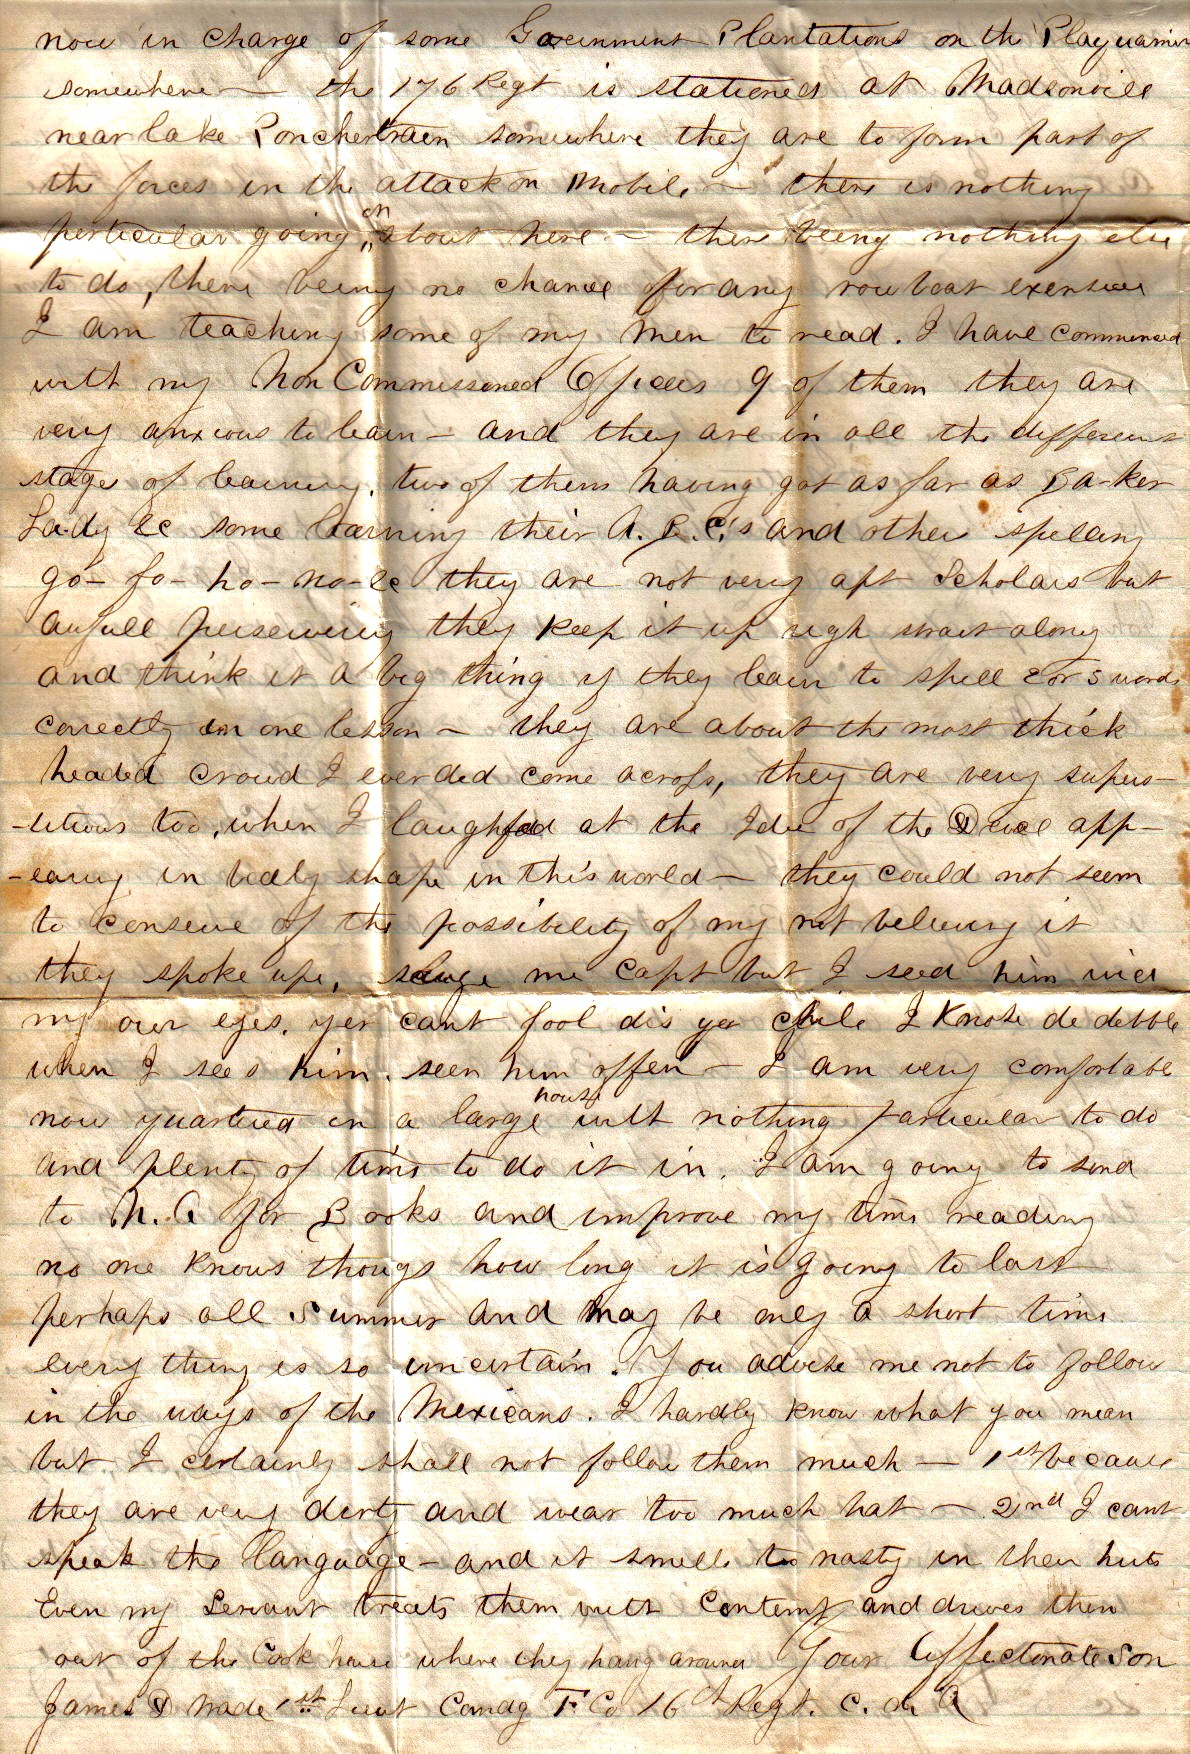 now in charge of some Government Plantations on the Plaquamin
somewhere — the 176 Regt is stationed at Madsonvill
near lake Poncher train somewhere they are to form part of
the forces in the attack on Mobile — there is nothing
perticular going on about here — there being nothing else
to do, there being no chance for any row boat exersises
I am teaching some of my Men to read. I have commenced
with my Non Commissioned Officers 9 of them they are
very anxious to learn — and they are in all the different
stages of learning. two of them having got as far as Ba-ker
La-dy &c some learning their A.B.C.'s and others spelling
go - fo - ho - no - &c they are not very apt Scholars but
aufull perseivering they keep it up righ strait along
and think it a big thing if they learn to spell 2 or 3 words
correctly in one lesson — they are about the most thick
headed croud I ever did come across, they are very supers-
-titious too, when I laughed at the Idea of the Devel app-
-earing in bodly shape in this world — they could not seem
to conseive of the possibility of my not beleiving it
they spoke up, scuse me Capt but I seed him wid
my own eyes. yer cant fool dis yer chile I knose de debble
when I sees him. seen him offen — I am very comfortable
now quartered in a large house with nothing particular to do
and plenty of time to do it in. I am going to send
to N.O for Books and improve my time reading
no one knows though how long it is going to last
perhaps all Summer and may be only a short time
every thing is so uncertain. You advise me not to follow
in the ways of the Mexicans. I hardly know what you mean
but I certainly shall not follow them much — 1st because
they are very dirty and wear too much hat — 2nd I cant
speak the language — and it smells too nasty in their huts
Even my Servant treats them with Contempt and drives them
out of the Cook house where they hang around Your Affectionate Son
James D Wade 1st Lieut Comdg F Co 16th Regt. C. de A